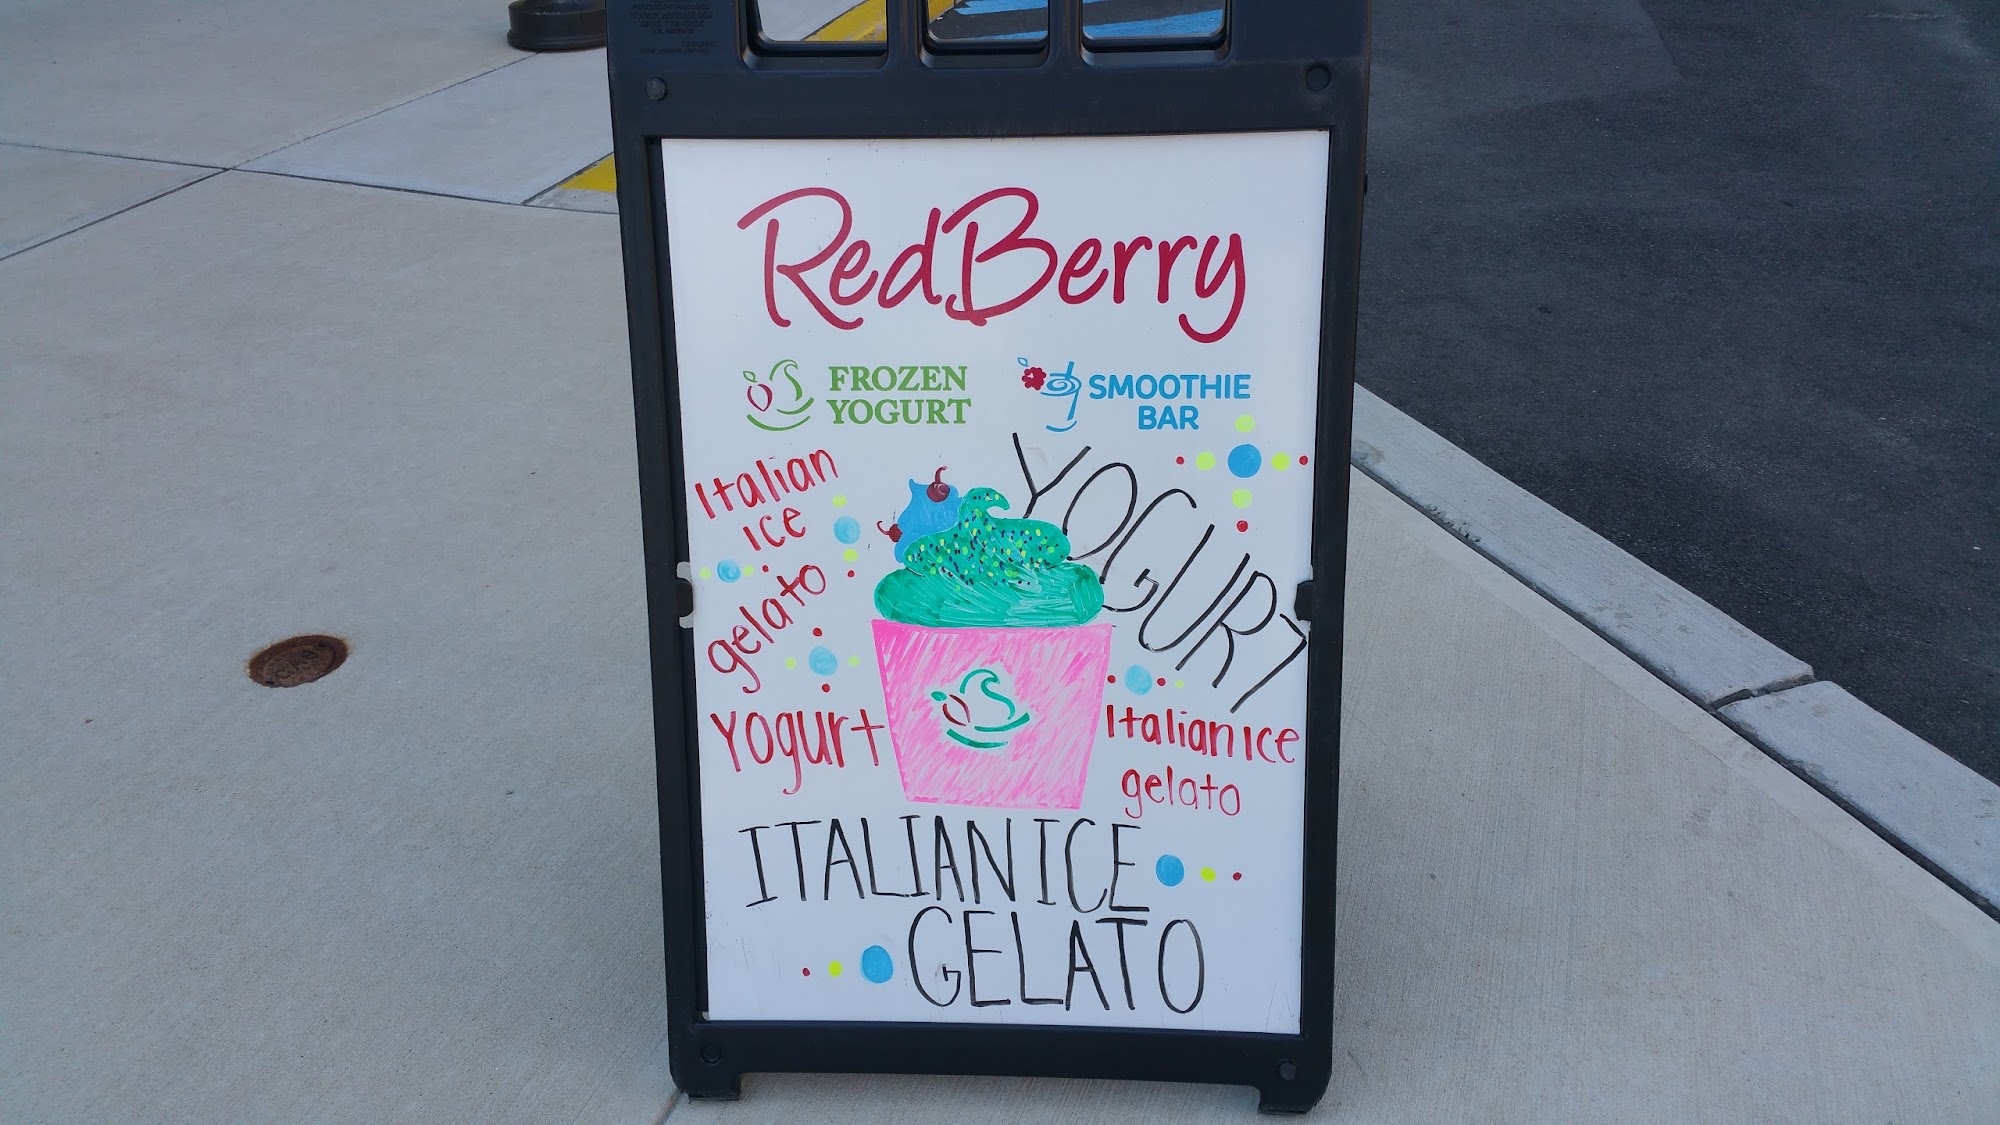 RedBerry
FROZEN
YOGURT
SMOOTHIE
BAR
Italian
ice
gelato
Yogurt
YOGURT
Italian Ice
gelato
ITALIAN ICE
GELATO